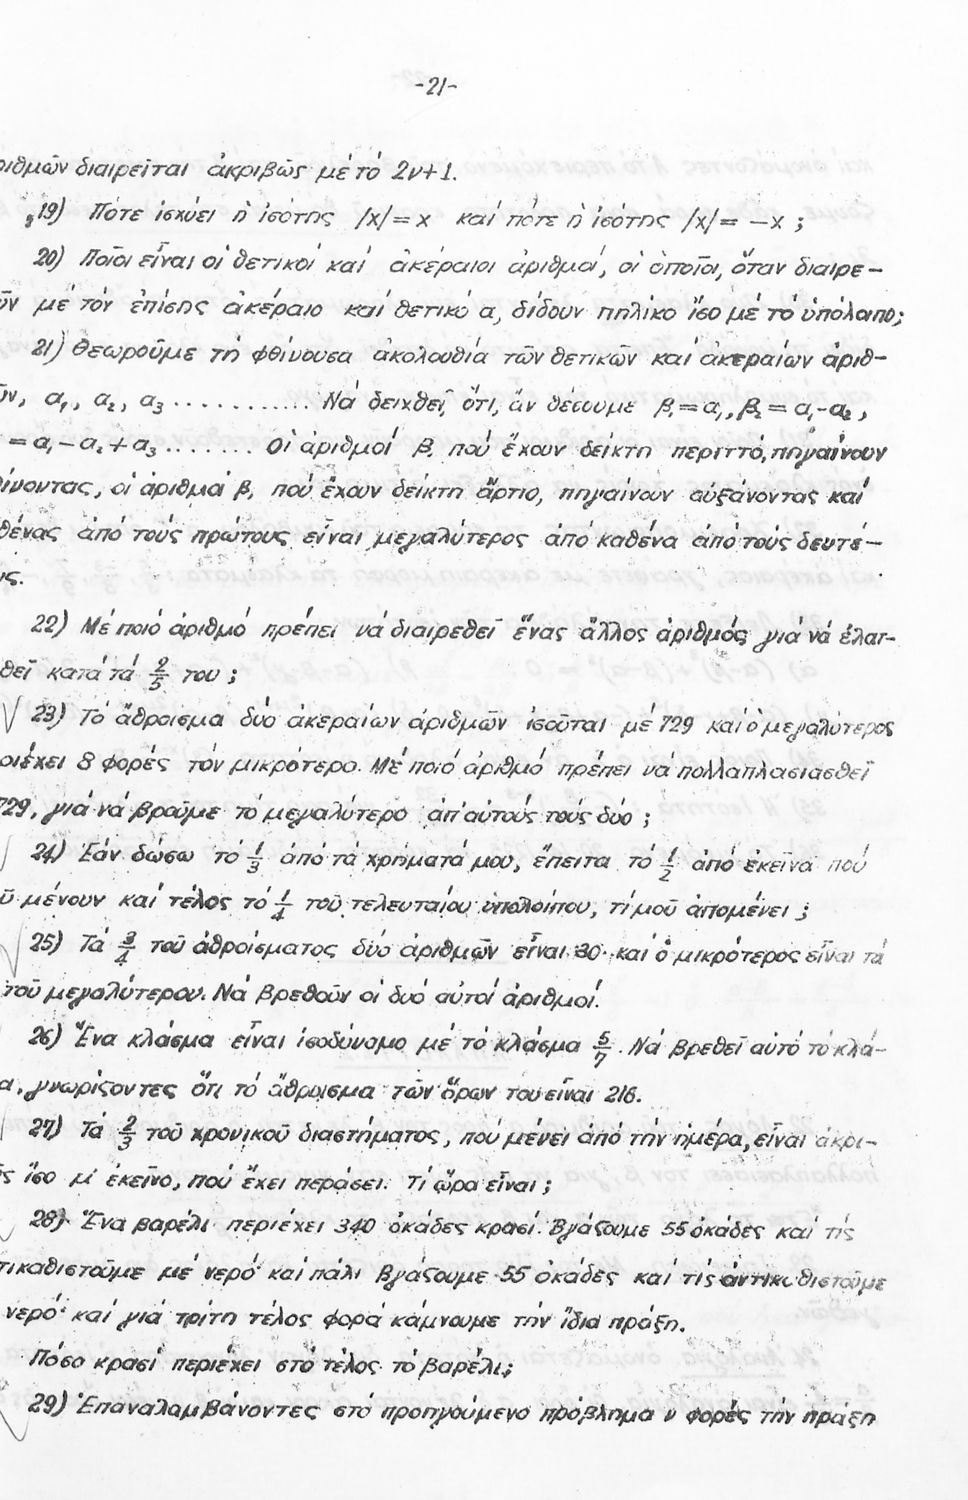 -21-
ριθμῶν διαιρεῖται ἀκριβῶς μέ τό 2ν+1.
19) Πότε ἰσχύει ἡ ἰσότης /x/ = x καί πότε ἡ ἰσότης /x/ = -x ;
20) Ποῖοι εἶναι οἱ θετικοί καί ἀκέραιοι ἀριθμοί, οἱ ὁποῖοι, ὅταν διαιρε-
ῦν μέ τόν ἐπίσης ἀκέραιο καί θετικό α, δίδουν πηλίκο ἴσο μέ τό ὑπόλοιπο;
21) Θεωροῦμε τή φθίνουσα ἀκολουθία τῶν θετικῶν καί ἀκεραίων ἀριθ-
ῶν, α₁, α₂, α₃ ............ Νά δειχθεῖ, ὅτι, ἄν θέσουμε β₁ = α₁, β₂ = α₁-α₂,
= α₁-α₂+α₃ ....... Οἱ ἀριθμοί β, πού ἔχουν δείκτη περιττό, πηγαίνουν
ίνοντας, οἱ ἀριθμοί β, πού ἔχουν δείκτη ἄρτιο, πηγαίνουν αὐξάνοντας καί
θένας ἀπό τούς πρώτους εἶναι μεγαλύτερος ἀπό καθένα ἀπό τούς δευτέ-
υς.
22) Μέ ποιό ἀριθμό πρέπει νά διαιρεθεῖ ἕνας ἄλλος ἀριθμός γιά νά ἐλατ-
θεῖ κατά τά 2/5 του ;
23) Τό ἄθροισμα δύο ἀκεραίων ἀριθμῶν ἰσοῦται μέ 729 καί ὁ μεγαλύτερος
ριέχει 8 φορές τόν μικρότερο. Μέ ποιό ἀριθμό πρέπει νά πολλαπλασιασθεῖ
729, γιά νά βροῦμε τό μεγαλύτερο ἀπ' αὐτούς τούς δύο ;
24) Ἐάν δώσω τό 1/3 ἀπό τά χρήματά μου, ἔπειτα τό 1/2 ἀπό ἐκεῖνα πού
ῦ μένουν καί τέλος τό 1/4 τοῦ τελευταίου ὑπολοίπου, τί μοῦ ἀπομένει ;
25) Τά 3/4 τοῦ ἀθροίσματος δύο ἀριθμῶν εἶναι 30 καί ὁ μικρότερος εἶναι τά
τοῦ μεγαλύτερου. Νά βρεθοῦν οἱ δυό αὐτοί ἀριθμοί.
26) Ἕνα κλάσμα εἶναι ἰσοδύναμο μέ τό κλάσμα 5/7. Νά βρεθεῖ αὐτό τό κλά-
α, γνωρίζοντες ὅτι τό ἄθροισμα τῶν ὅρων του εἶναι 216.
27) Τά 2/3 τοῦ χρονικοῦ διαστήματος, πού μένει ἀπό τήν ἡμέρα, εἶναι ἀκρι-
ς ἴσο μ' ἐκεῖνο, πού ἔχει περάσει. Τί ὥρα εἶναι ;
28) Ἕνα βαρέλι περιέχει 340 ὀκάδες κρασί. Βγάζουμε 55 ὀκάδες καί τίς
τικαθιστοῦμε μέ νερό καί πάλι βγάζουμε 55 ὀκάδες καί τίς ἀντικαθιστοῦμε
νερό καί γιά τρίτη τέλος φορά κάμνουμε τήν ἴδια πράξη.
Πόσο κρασί περιέχει στό τέλος τό βαρέλι;
29) Ἐπαναλαμβάνοντες στό προηγούμενο πρόβλημα ν φορές τήν πράξη